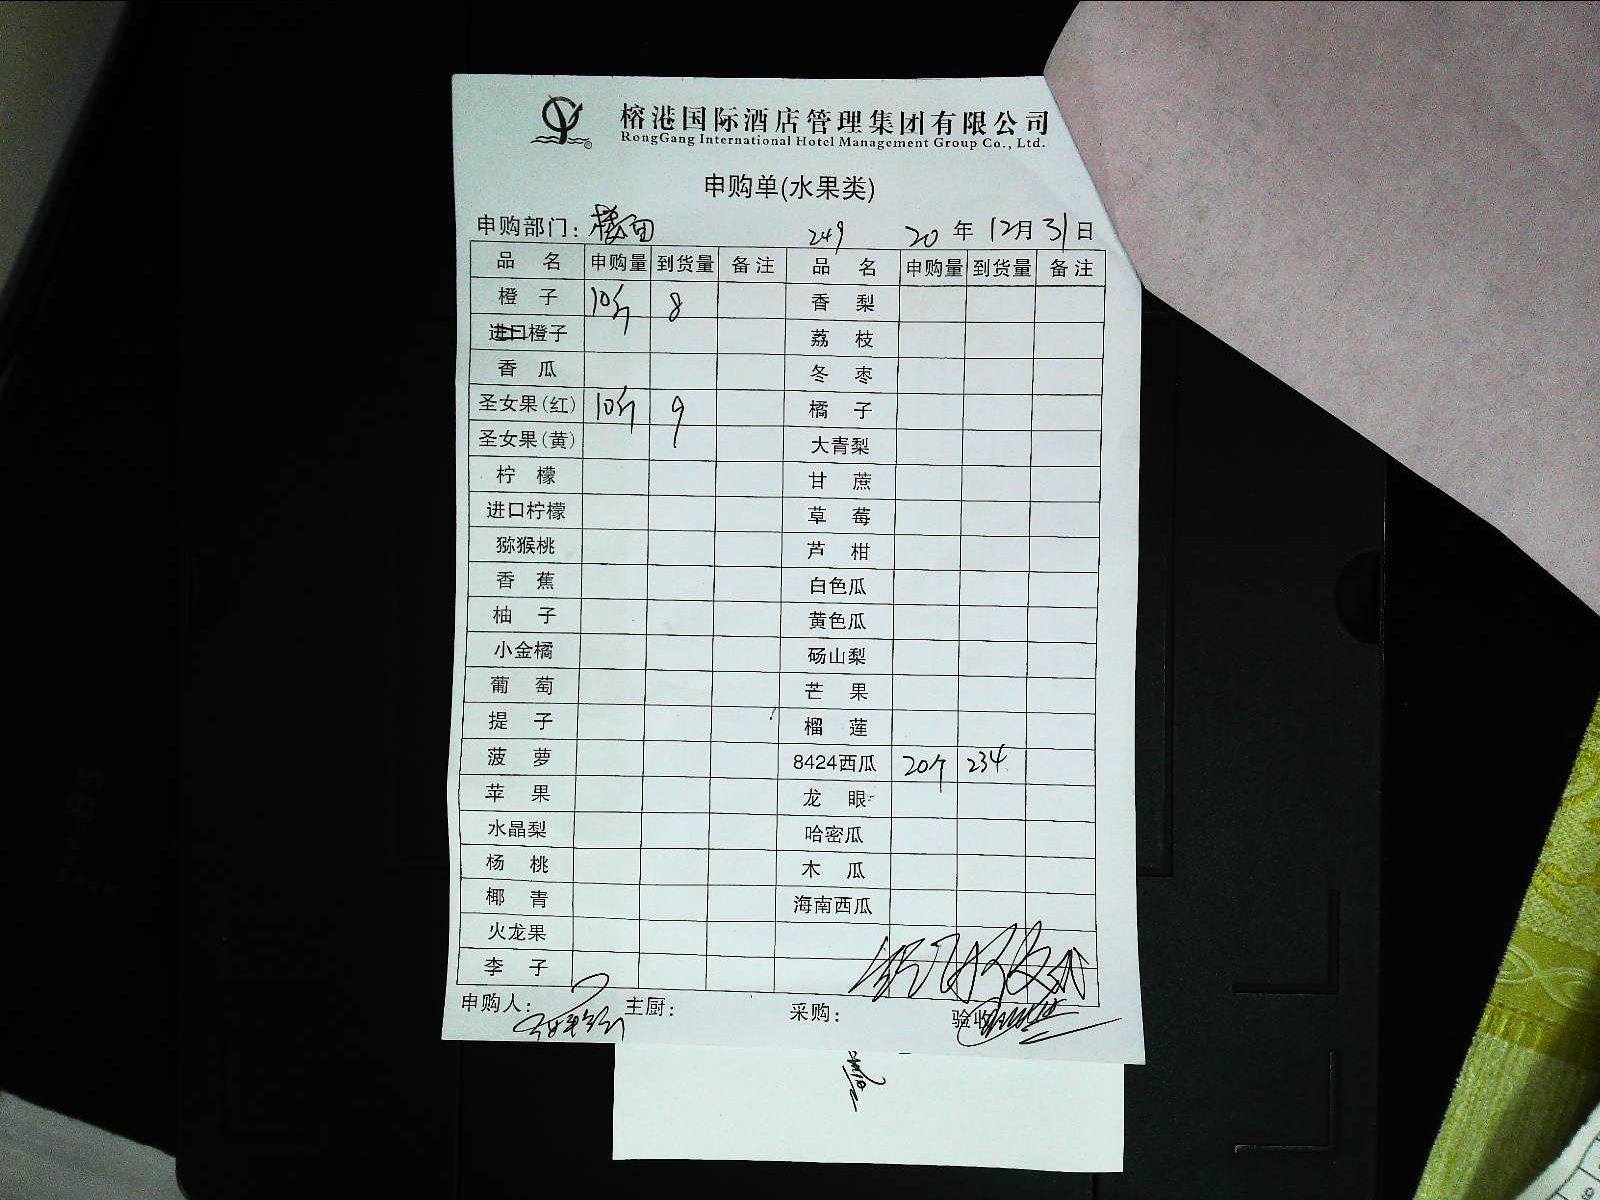 榕港国际酒店管理集团有限公司
RongGang International Hotel Management Group Co., Ltd.
申购单(水果类)
申购部门: 楼面 249 20 年 12月 31日
品 名 申购量 到货量 备注 品 名 申购量 到货量 备注
橙 子 10斤 8 香 梨
进口橙子 荔 枝
香 瓜 冬 枣
圣女果(红) 10斤 9 橘 子
圣女果(黄) 大青梨
柠 檬 甘 蔗
进口柠檬 草 莓
猕猴桃 芦 柑
香 蕉 白色瓜
柚 子 黄色瓜
小金橘 砀山梨
葡 萄 芒 果
提 子 榴 莲
菠 萝 8424西瓜 20个 234
苹 果 龙 眼
水晶梨 哈密瓜
杨 桃 木 瓜
椰 青 海南西瓜
火龙果
李 子
申购人: 主厨: 采购: 验收